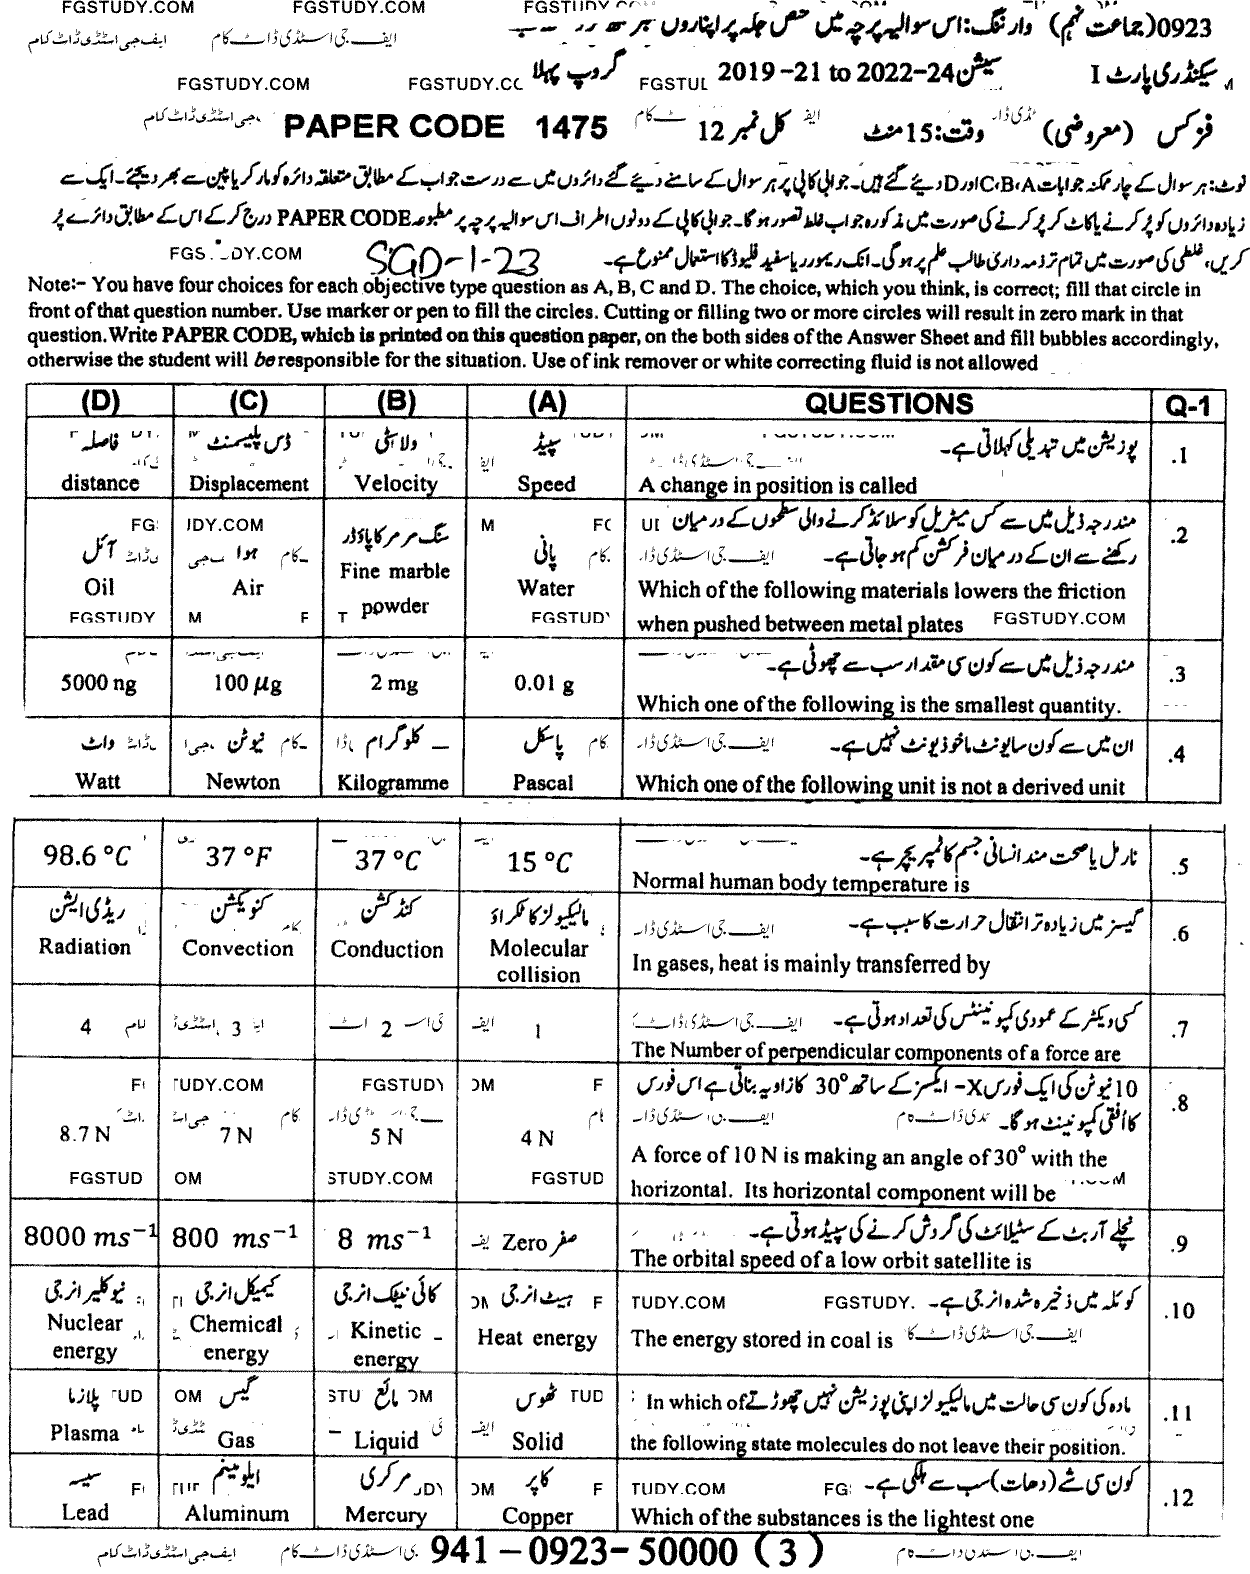 FGSTUDY.COM FGSTUDY.COM
0923(جماعت نہم) وارننگ: اس سوالیہ پرچہ میں
ایف جی اسٹڈی ڈاٹ کام ایف جی اسٹڈی ڈاٹ کام
سیکنڈری پارٹ I سیشن 2019-21 to 2022-24 گروپ پہلا
FGSTUDY.COM
فزکس (معروضی) وقت: 15 منٹ کل نمبر 12 PAPER CODE 1475
نوٹ: ہر سوال کے چار ممکنہ جوابات C،B،A اور D دیئے گئے ہیں۔ جوابی کاپی پر ہر سوال کے سامنے دیئے گئے دائروں میں سے درست جواب کے مطابق متعلقہ دائرہ کو مارکر یا پین سے بھر دیجئے۔ ایک سے
زیادہ دائروں کو پُر کرنے یا کاٹ کر پُر کرنے کی صورت میں مذکورہ جواب غلط تصور ہوگا۔ جوابی کاپی کے دونوں اطراف اس سوالیہ پرچہ پر مطبوعہ PAPER CODE درج کر کے اس کے مطابق دائرے پُر
کریں، غلطی کی صورت میں تمام تر ذمہ داری طالب علم پر ہوگی۔ انک ریموور یا سفید فلیوڈ کا استعمال ممنوع ہے۔
SGD-1-23
Note:- You have four choices for each objective type question as A, B, C and D. The choice, which you think, is correct; fill that circle in
front of that question number. Use marker or pen to fill the circles. Cutting or filling two or more circles will result in zero mark in that
question. Write PAPER CODE, which is printed on this question paper, on the both sides of the Answer Sheet and fill bubbles accordingly,
otherwise the student will be responsible for the situation. Use of ink remover or white correcting fluid is not allowed
(D) (C) (B) (A) QUESTIONS Q-1
فاصلہ ڈس پلیسمنٹ ولاسٹی سپیڈ پوزیشن میں تبدیلی کہلاتی ہے۔ .1
distance Displacement Velocity Speed A change in position is called
مندرجہ ذیل میں سے کس میٹریل کو سلائڈ کرنے والی سطحوں کے درمیان .2
آئل ہوا سنگ مرمر کا پاؤڈر پانی رکھنے سے ان کے درمیان فرکشن کم ہو جاتی ہے۔
Oil Air Fine marble Water Which of the following materials lowers the friction
powder when pushed between metal plates FGSTUDY.COM
مندرجہ ذیل میں سے کون سی مقدار سب سے چھوٹی ہے۔ .3
5000 ng 100 μg 2 mg 0.01 g
Which one of the following is the smallest quantity.
واٹ نیوٹن کلوگرام پاسکل ان میں سے کون سا یونٹ ماخوذ یونٹ نہیں ہے۔ .4
Watt Newton Kilogramme Pascal Which one of the following unit is not a derived unit
98.6 °C 37 °F 37 °C 15 °C نارمل یا صحت مند انسانی جسم کا ٹمپریچر ہے۔ .5
Normal human body temperature is
ریڈی ایشن کنویکشن کنڈکشن مالیکیولز کا ٹکراؤ گیسز میں زیادہ تر انتقال حرارت کا سبب ہے۔ .6
Radiation Convection Conduction Molecular In gases, heat is mainly transferred by
collision
4 3 2 1 کسی ویکٹر کے عمودی کمپونینٹس کی تعداد ہوتی ہے۔ .7
The Number of perpendicular components of a force are
10 نیوٹن کی ایک فورس X- ایکسز کے ساتھ 30° کا زاویہ بناتی ہے اس فورس .8
کا اُفقی کمپونینٹ ہوگا۔
8.7 N 7 N 5 N 4 N A force of 10 N is making an angle of 30° with the
horizontal. Its horizontal component will be
8000 ms⁻¹ 800 ms⁻¹ 8 ms⁻¹ Zero صفر نچلے آربٹ کے سٹیلائٹ کی گردش کرنے کی سپیڈ ہوتی ہے۔ .9
The orbital speed of a low orbit satellite is
نیوکلیر انرجی کیمیکل انرجی کائی نیٹک انرجی ہیٹ انرجی کوئلہ میں ذخیرہ شدہ انرجی ہے۔ .10
Nuclear Chemical Kinetic Heat energy The energy stored in coal is
energy energy energy
پلازما گیس مائع ٹھوس مادہ کی کون سی حالت میں مالیکیولز اپنی پوزیشن نہیں چھوڑتے In which of .11
Plasma Gas Liquid Solid the following state molecules do not leave their position.
سیسہ ایلومینم مرکری کاپر کون سی شے (دھات) سب سے ہلکی ہے۔ .12
Lead Aluminum Mercury Copper Which of the substances is the lightest one
941-0923-50000 (3)